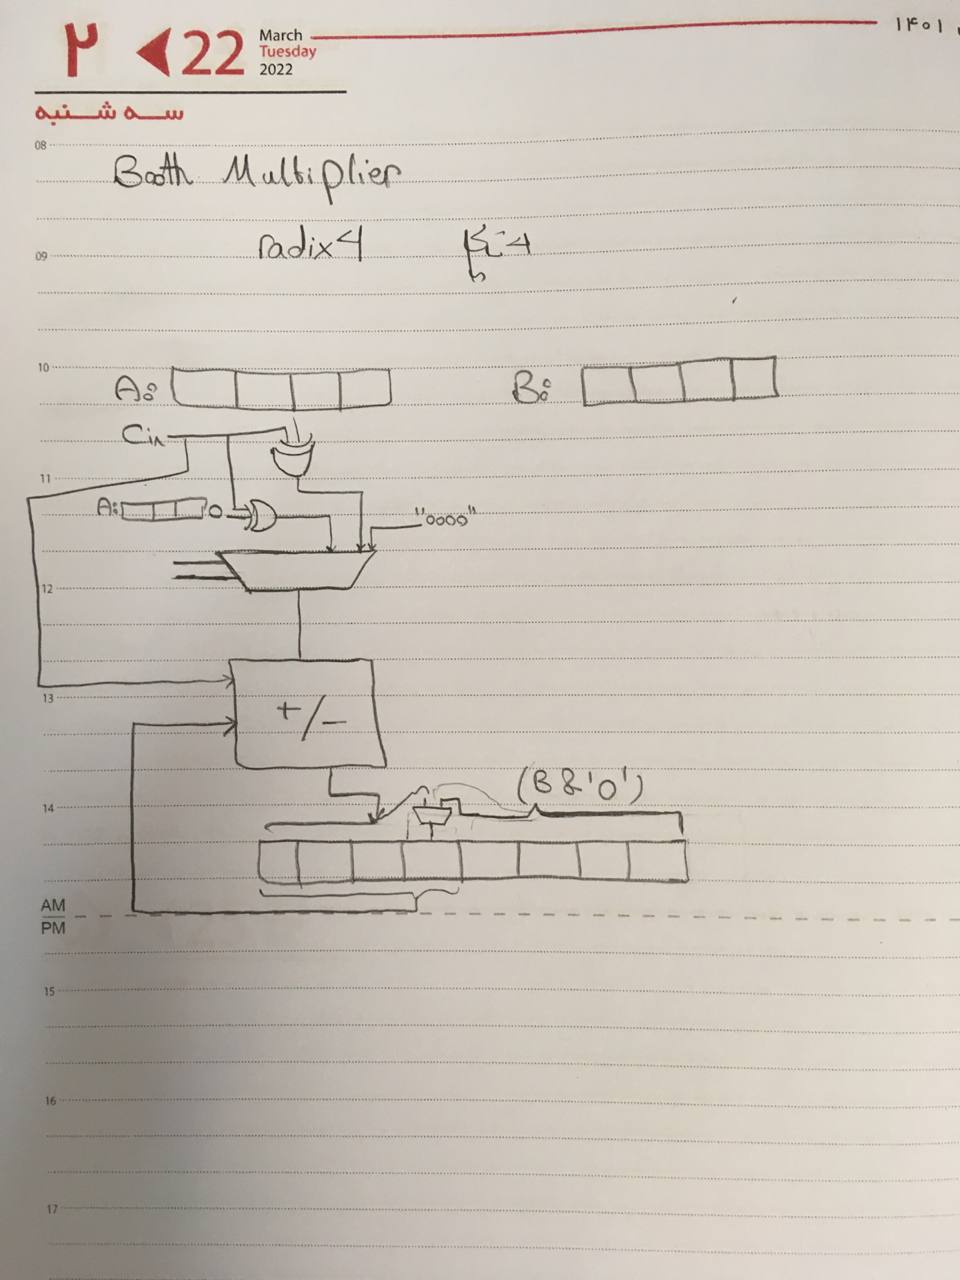 ۲ 22 March
Tuesday
2022
۱۴۰۱
سه شنبه
08
Booth Multiplier
radix 4
09
10
A: B:
Cin
11
A: 0 "0000"
12
13
+/-
(B & '0')
14
AM
PM
15
16
17